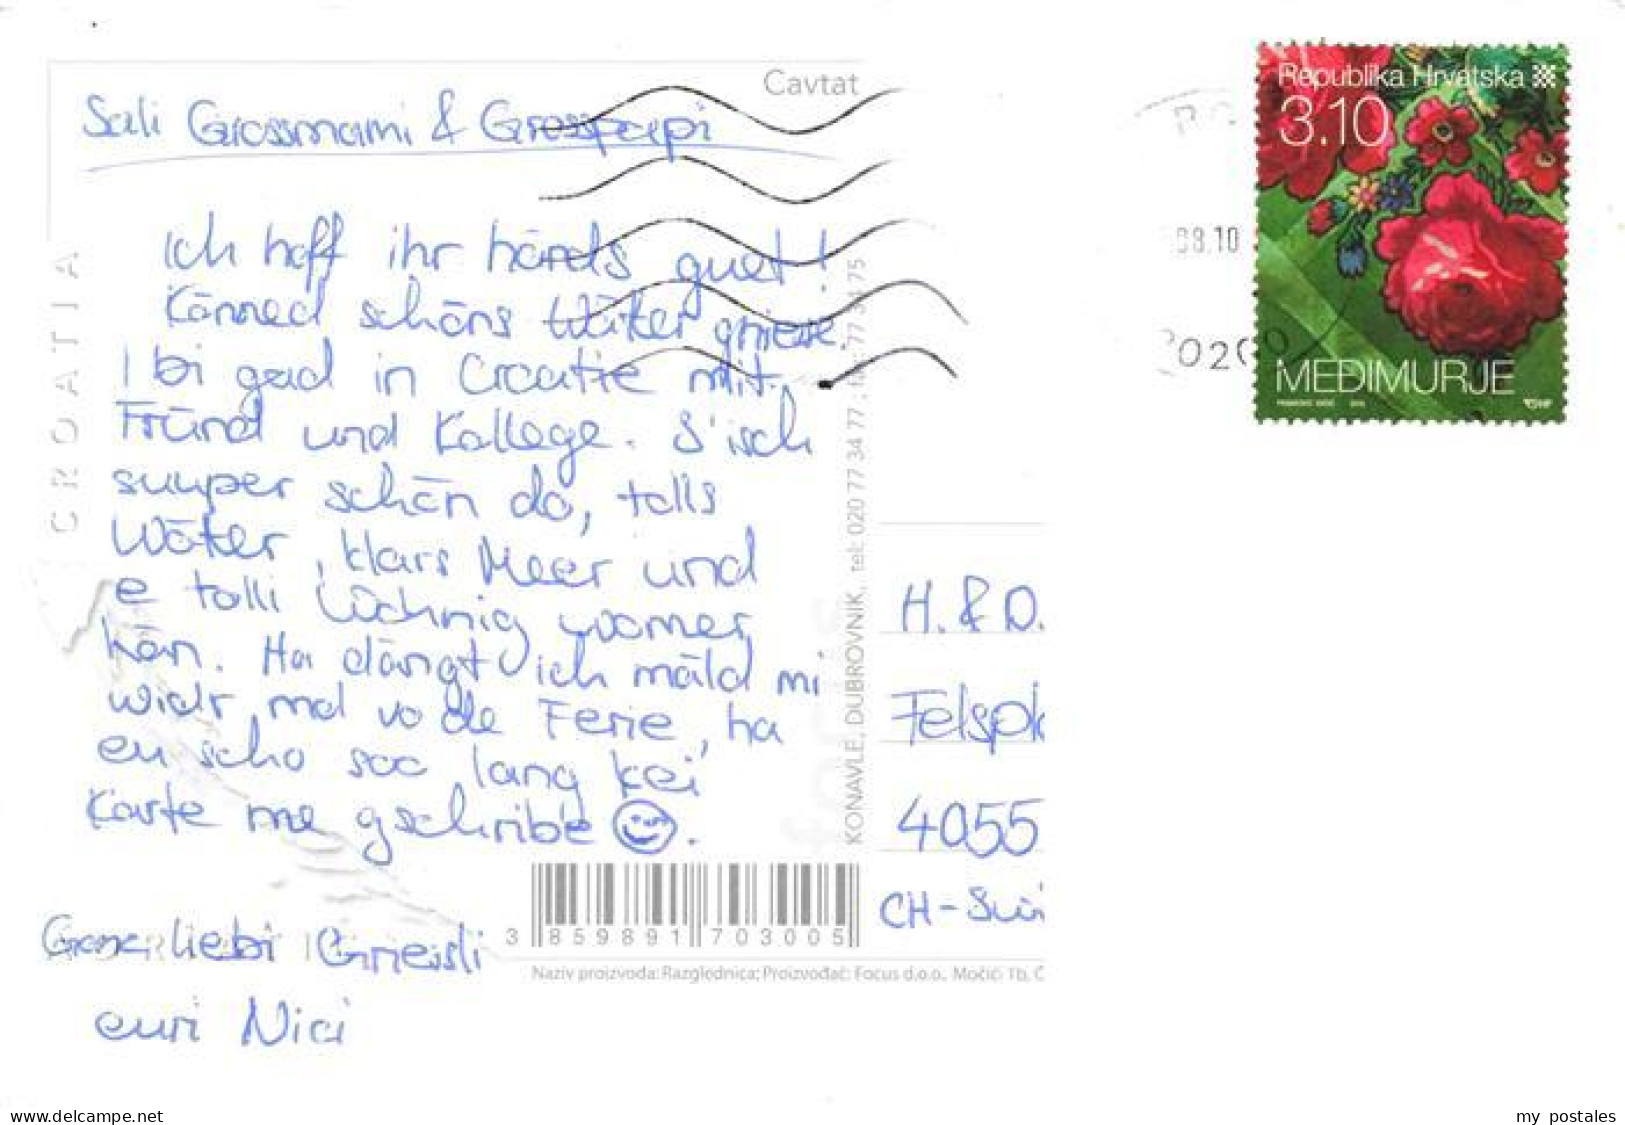 Cavtat
Republika Hrvatska
3.10
MEĐIMURJE
08.10
020
CROATIA
Sali Grossmami & Grosspapi
Ich hoff ihr händs guet!
Känned schöns Wätter gniesse.
I bi grad in Croatie mit
Fründ und Kollege. S'isch
suuper schön do, tolls
Wätter, klars Meer und
e tolli Wohnig womer
hän. Ha dängt ich mäld mi
widr mol vo de Ferie, ha
eu scho soo lang kei
Karte me gschribe ☺.
Ganz liebi Griessli
euri Nici
H. & D.
Felspla
4055
CH-
KONAVLE, DUBROVNIK, tel: 020 77 34 77 ; fax: 77 34 75
3 859891 703005
Naziv proizvoda: Razglednica; Proizvođač: Focus d.o.o., Močići Tb, Č
www.delcampe.net
my_postales